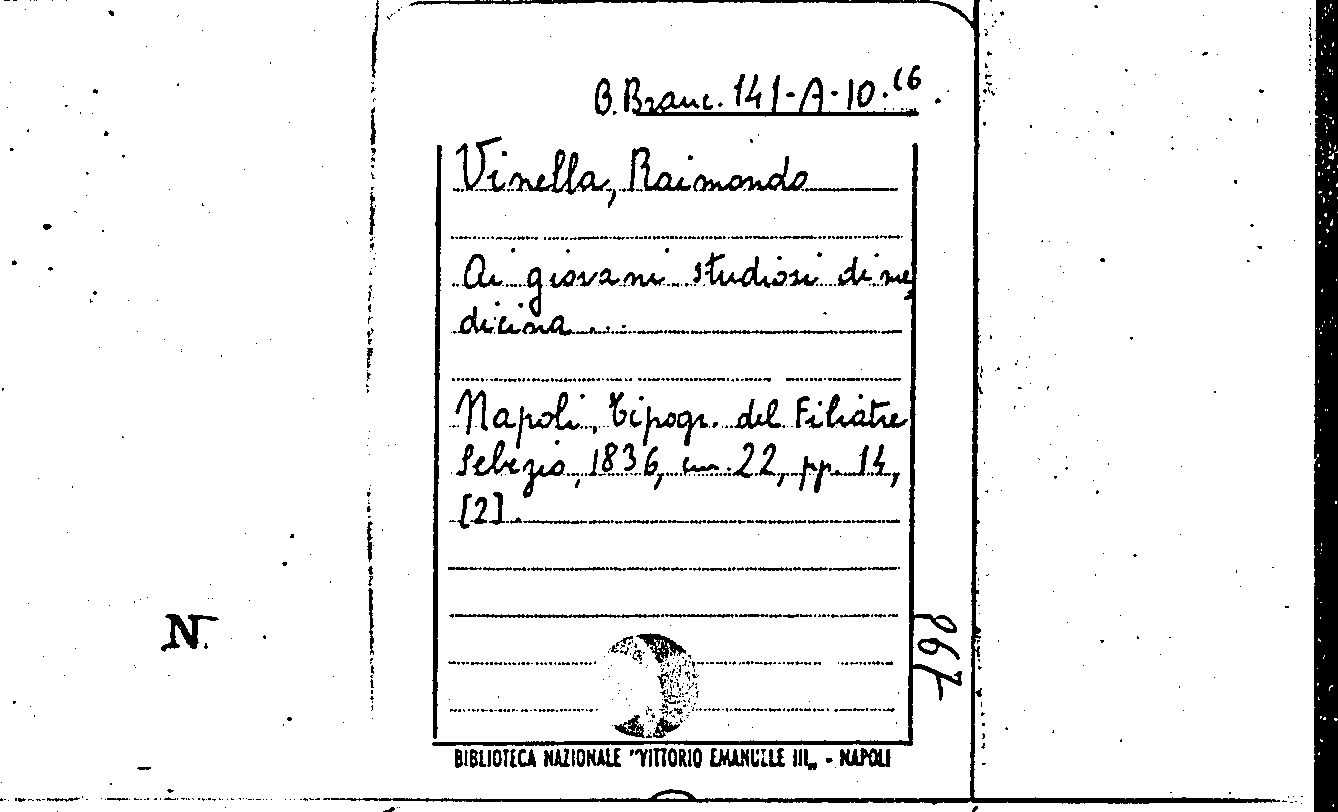 B. Branc. 141-A-10.16
Vinella, Raimondo
Ai giovani studiosi di me,
dicina ...
Napoli, Tipogr. del Filiatre
Sebezio, 1836, cm. 22, pp. 14,
[2].
N.
867
BIBLIOTECA NAZIONALE "VITTORIO EMANUELE III„ - NAPOLI